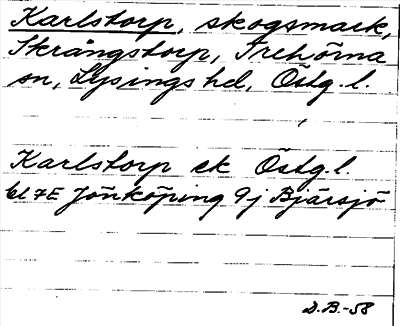 Karlstorp, skogsmark,
Skrångstorp, Trehörna
sn, Lysings hd, Östg. l.
Karlstorp ek Östg. l.
bl 7E Jönköping 9j Bjärsjö
D.B.-58